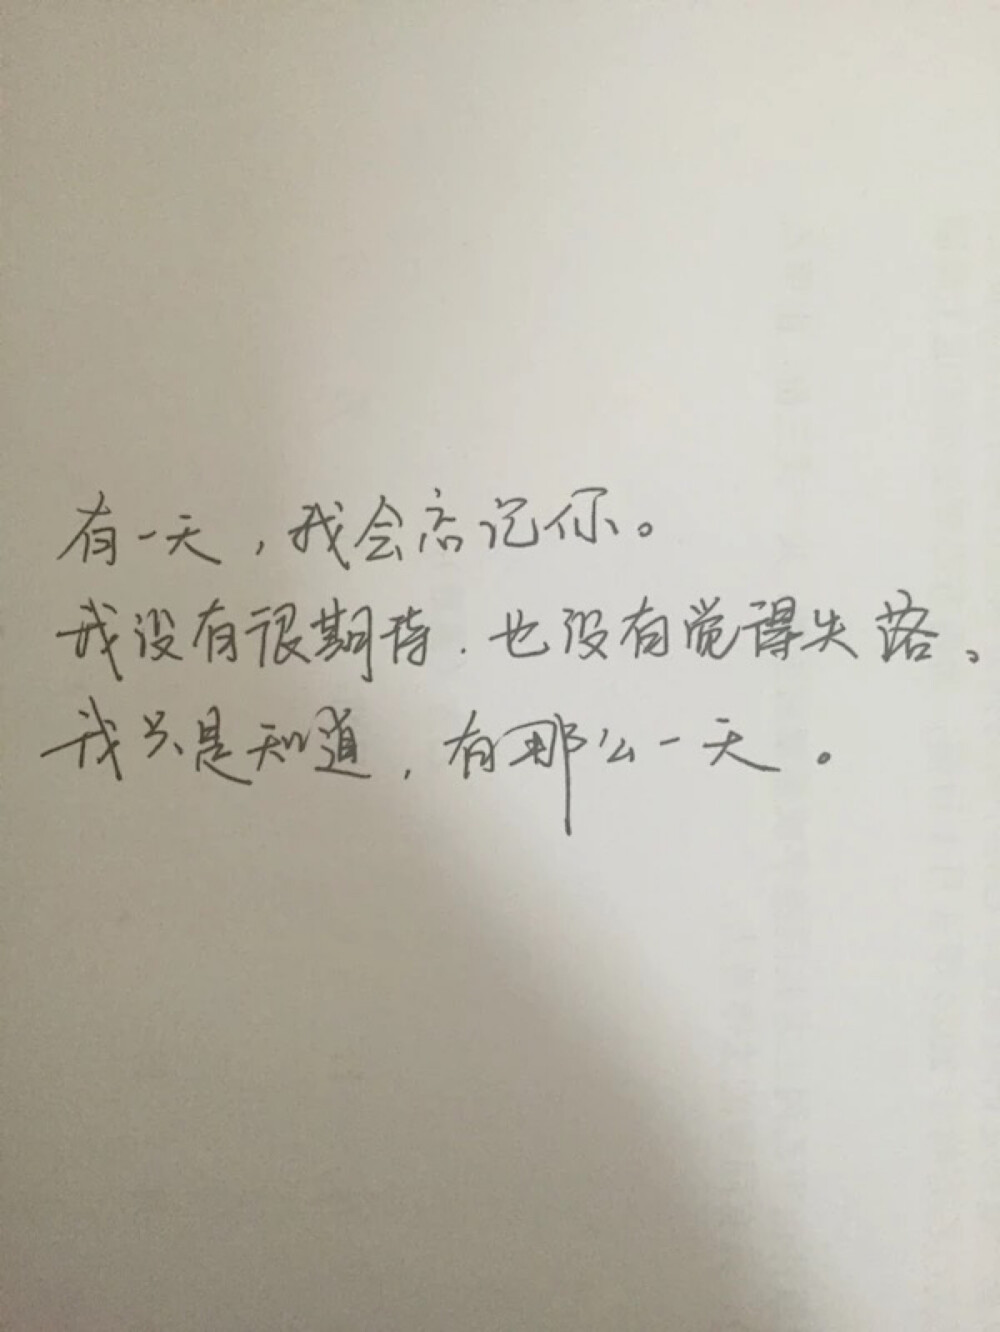 有一天，我会忘记你。
我没有很期待．也没有觉得失落。
我只是知道，有那么一天。